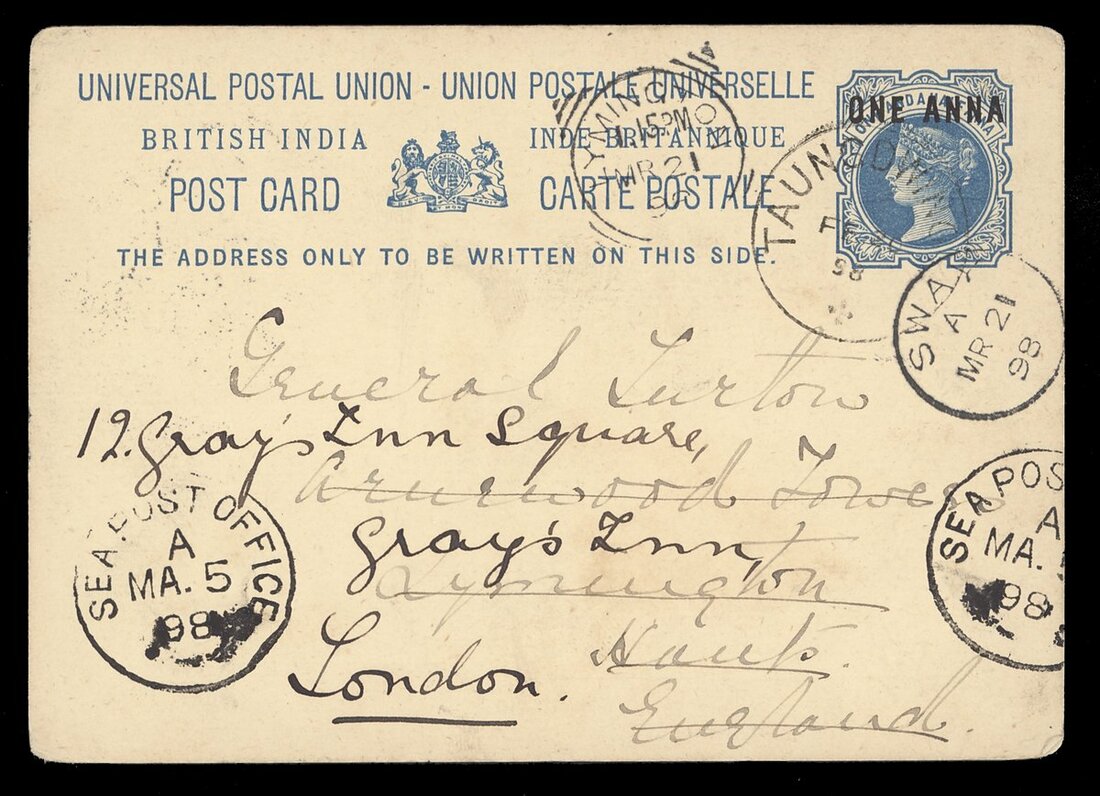 UNIVERSAL POSTAL UNION - UNION POSTALE UNIVERSELLE
BRITISH INDIA INDE BRITANNIQUE
POST CARD CARTE POSTALE
THE ADDRESS ONLY TO BE WRITTEN ON THIS SIDE.
ONE ANNA
LYMINGTON
1.15PM
MR 21
98
TAUNGDWIN
98
SWAY
A
MR 21
98
General Turton
12. Gray's Inn Square,
Arnewood Towers
Gray's Inn,
Lymington
Hants.
London.
England.
SEA POST OFFICE
A
MA. 5
98
SEA POS
A
MA.
98